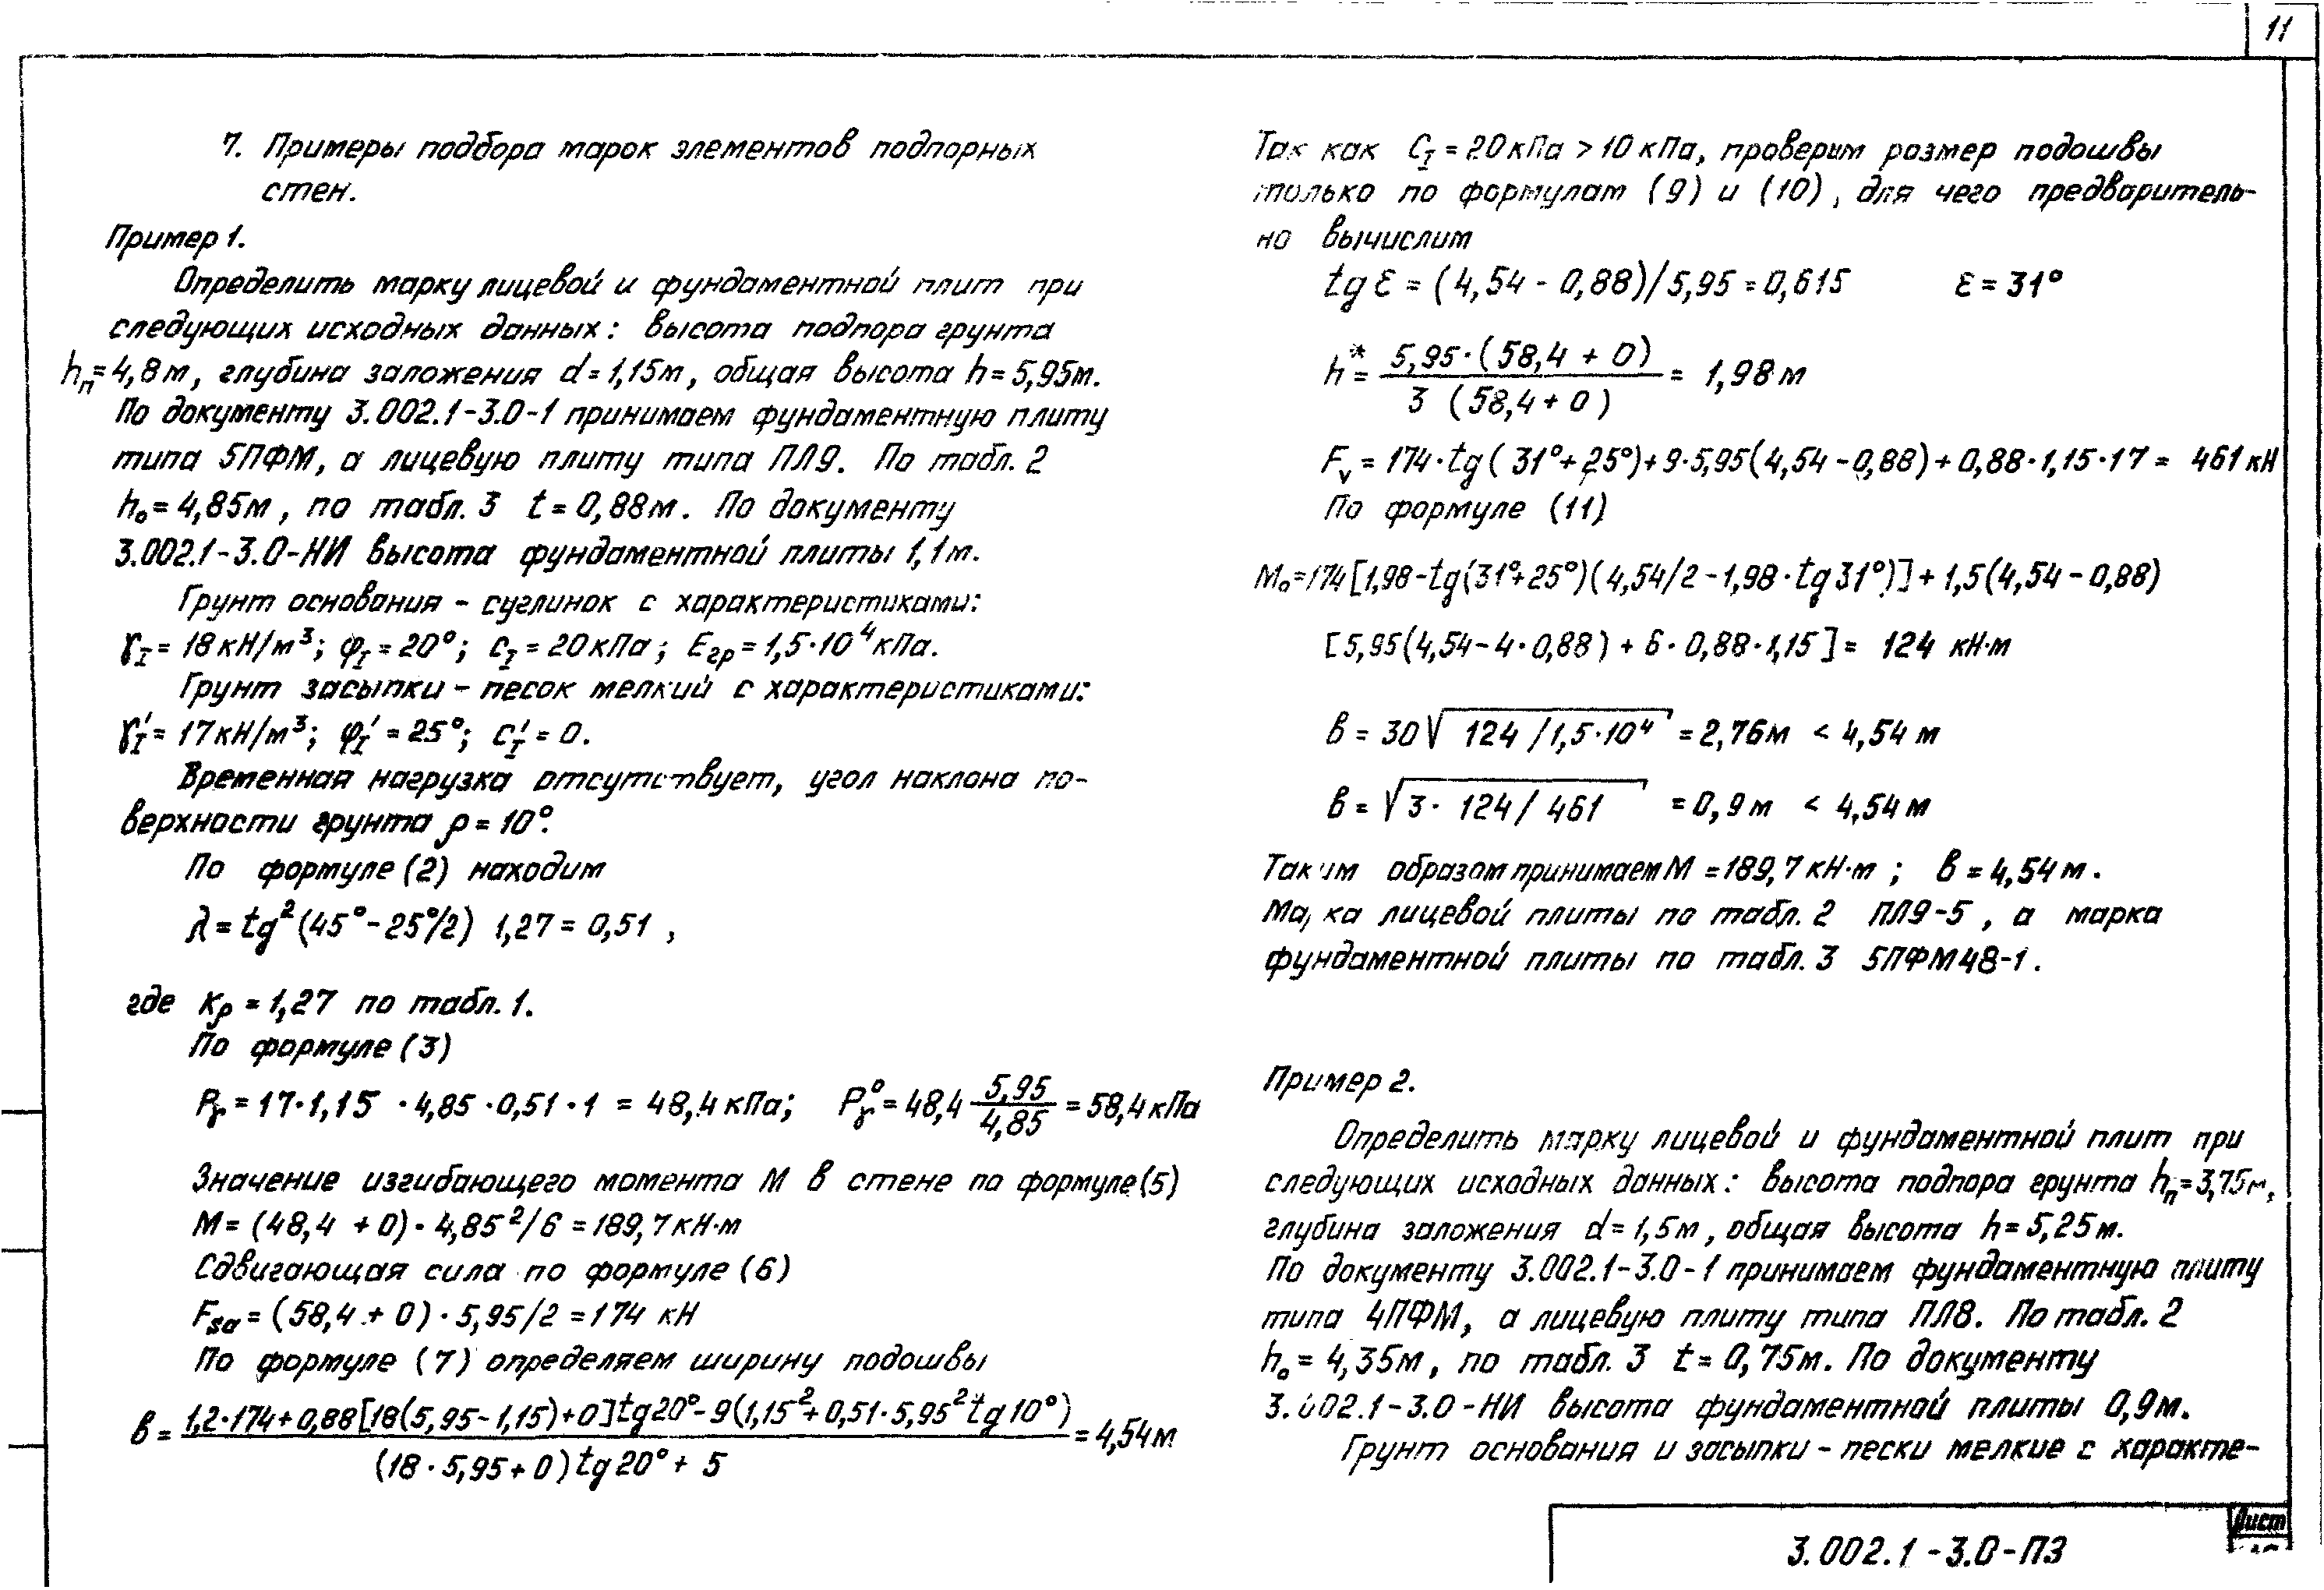 11
7. Примеры подбора марок элементов подпорных
стен.
Пример 1.
Определить марку лицевой и фундаментной плит при
следующих исходных данных: высота подпора грунта
hп=4,8м, глубина заложения d=1,15м, общая высота h=5,95м.
По документу 3.002.1-3.0-1 принимаем фундаментную плиту
типа 5ПФМ, а лицевую плиту типа ПЛ9. По табл. 2
h₀=4,85м, по табл. 3 t=0,88м. По документу
3.002.1-3.0-НИ высота фундаментной плиты 1,1м.
Грунт основания - суглинок с характеристиками:
γ_I=18кН/м³; φ_I=20°; c_I=20кПа; Eгр=1,5·10⁴кПа.
Грунт засыпки - песок мелкий с характеристиками:
γ'_I=17кН/м³; φ'_I=25°; c'_I=0.
Временная нагрузка отсутствует, угол наклона по-
верхности грунта ρ=10°.
По формуле (2) находим
λ=tg²(45°-25°/2) 1,27=0,51 ,
где Kρ=1,27 по табл. 1.
По формуле (3)
Pγ=17·1,15 ·4,85·0,51·1 = 48,4кПа; P⁰γ=48,4 5,95/4,85 =58,4кПа
Значение изгибающего момента М в стене по формуле (5)
М=(48,4 +0)·4,85²/6=189,7кН·м
Сдвигающая сила по формуле (6)
Fsa=(58,4 + 0)·5,95/2=174 кН
По формуле (7) определяем ширину подошвы
в= (1,2·174+0,88[18(5,95-1,15)+0]tg20°-9(1,15²+0,51·5,95²tg10°))/((18·5,95+0)tg20°+5) =4,54м
Так как C_I=20кПа >10кПа, проверим размер подошвы
только по формулам (9) и (10), для чего предваритель-
но вычислим
tgε=(4,54-0,88)/5,95=0,615 ε=31°
h*= 5,95·(58,4+0)/3 (58,4+0) = 1,98м
Fv=174·tg(31°+25°)+9·5,95(4,54-0,88)+0,88·1,15·17= 461кН
По формуле (11)
М₀=174[1,98-tg(31°+25°)(4,54/2-1,98·tg31°)]+1,5(4,54-0,88)
[5,95(4,54-4·0,88)+6·0,88·1,15]= 124 кН·м
в=30√124/1,5·10⁴ =2,76м <4,54м
в=√3·124/461 =0,9м <4,54м
Таким образом принимаем М=189,7кН·м ; в=4,54м.
Марка лицевой плиты по табл. 2 ПЛ9-5, а марка
фундаментной плиты по табл. 3 5ПФМ48-1.
Пример 2.
Определить марку лицевой и фундаментной плит при
следующих исходных данных: высота подпора грунта hп=3,75м,
глубина заложения d=1,5м, общая высота h=5,25м.
По документу 3.002.1-3.0-1 принимаем фундаментную плиту
типа 4ПФМ, а лицевую плиту типа ПЛ8. По табл. 2
h₀=4,35м, по табл. 3 t=0,75м. По документу
3.002.1-3.0-НИ высота фундаментной плиты 0,9м.
Грунт основания и засыпки - пески мелкие с характе-
3.002.1-3.0-ПЗ
Лист